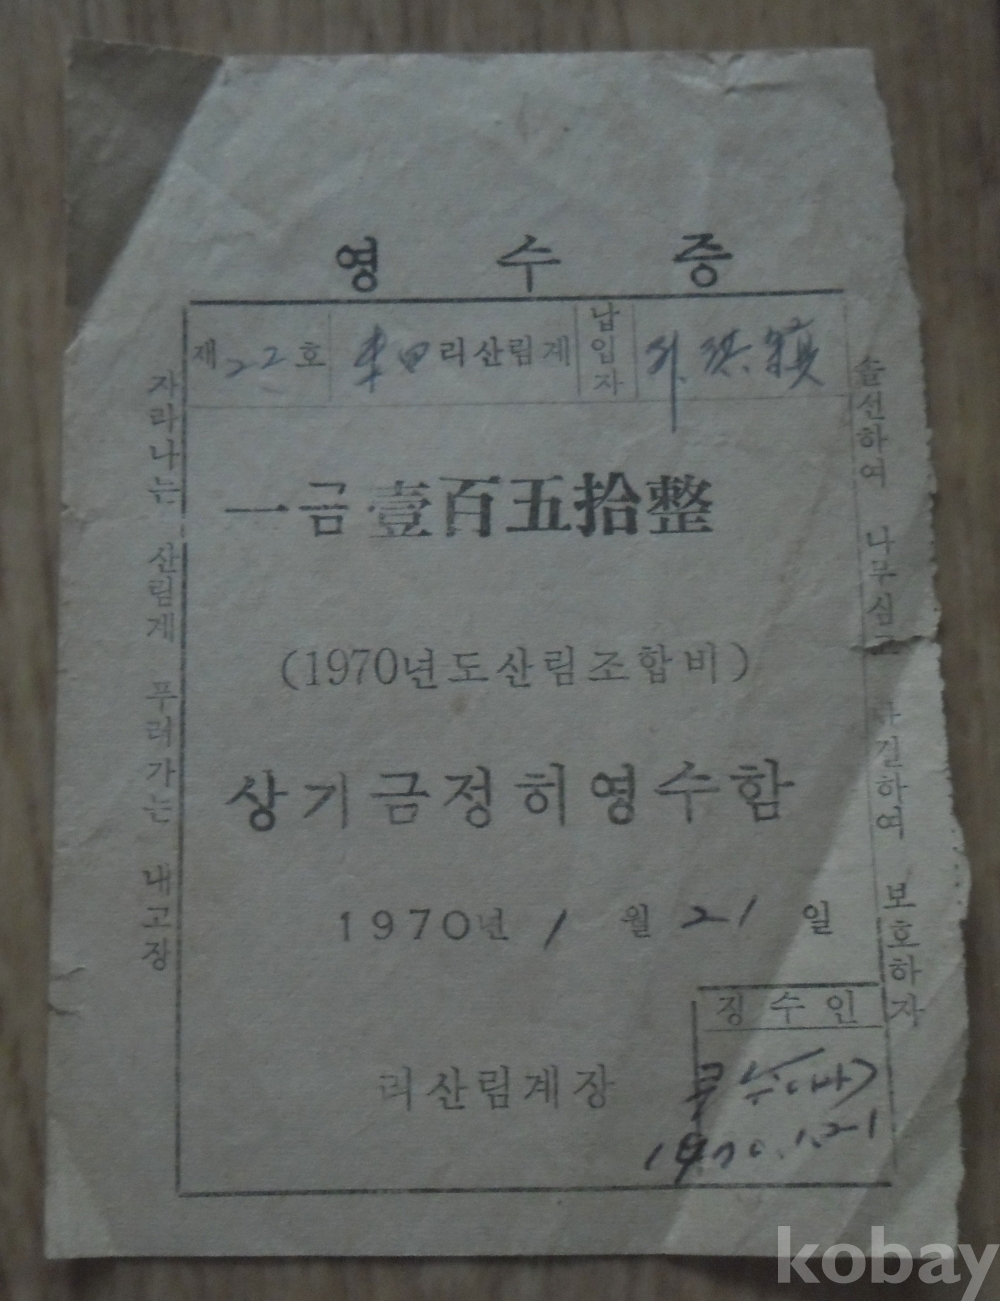 영 수 증
제 22 호
리산림계
납입자
一금 壹百五拾整
(1970년도산림조합비)
상기금정히영수함
1970년 1 월 21 일
징 수 인
리산림계장
1970.1.21
자라나는 산림계 푸러가는 내고장
솔선하여 나무심고 하여 보호하자
kobay